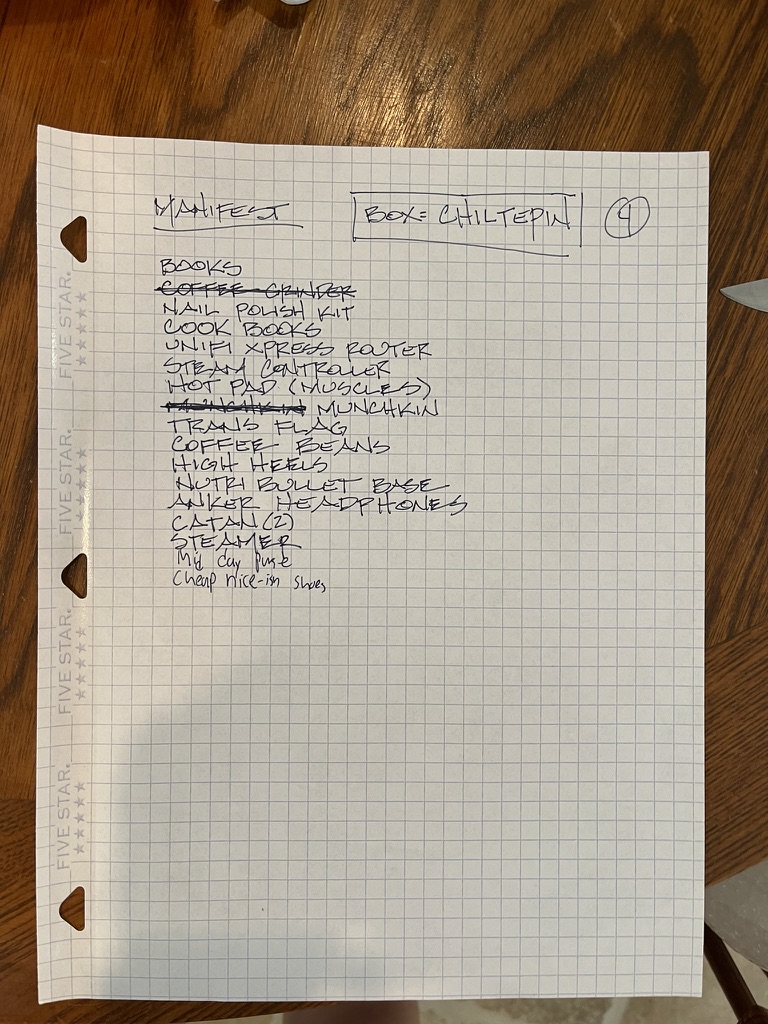 MANIFEST BOX= CHILTEPIN 4
BOOKS
COFFEE GRINDER
NAIL POLISH KIT
COOK BOOKS
UNIFI XPRESS ROUTER
STEAM CONTROLLER
HOT PAD (MUSCLES)
MUNCHKIN MUNCHKIN
TRANS FLAG
COFFEE BEANS
HIGH HEELS
NUTRI BULLET BASE
ANKER HEADPHONES
CATAN (2)
STEAMER
Mid day purse
Cheap nice-ish shoes
FIVE STAR.
FIVE STAR.
FIVE STAR.
FIVE STAR.